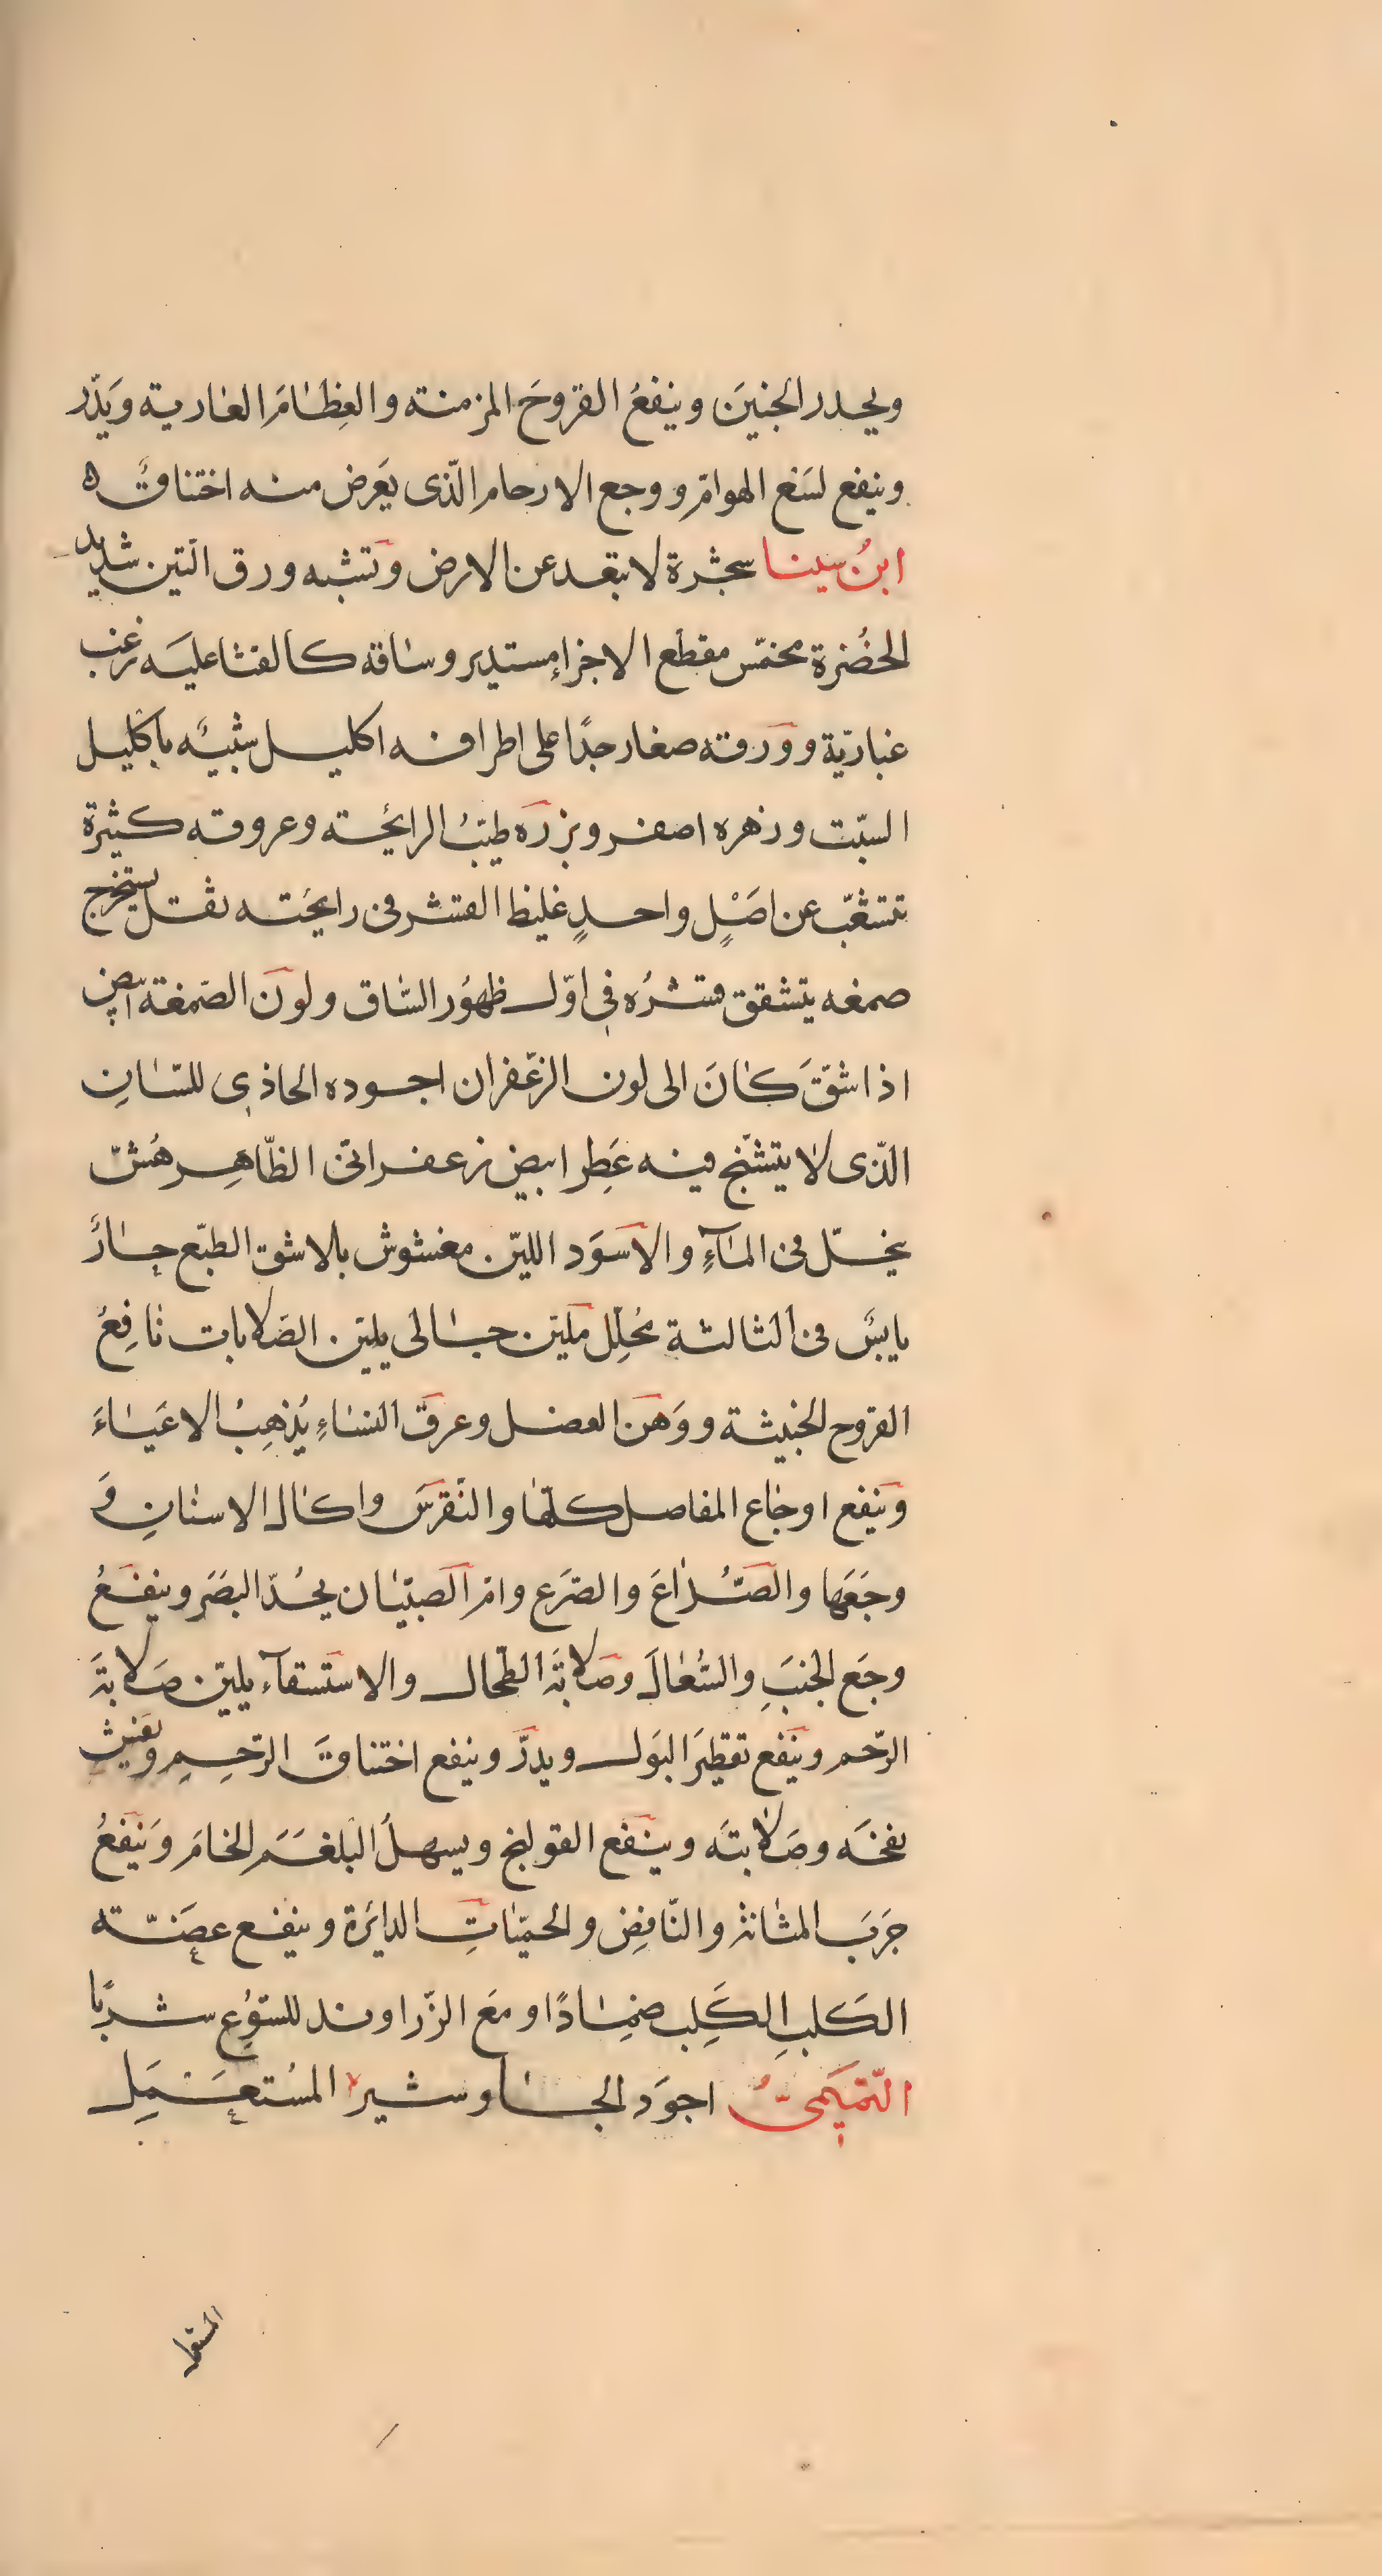 ويحدر الجنينَ وينفعُ القروحَ المزمنته والعِظامَ العاريه وَيدّر
وينفع لسَغ الهوامّ ووجع الارحام الّذى يَعرض منه اختناقٌ ه
ابنُ سينا سجٛرة لا تبعد عن الارض وتشبه ورق التين شديد
الخُضرة مخمّس مقطع الاجزاء مستدير وساقه كالقثا عليَه زغب
غباريّة وورقه صغار جدًا على اطرافه اكليل شبيٌه باكليل
السبّت وزهره اصفر وبزره طيّبُ الرائحته وعروقه كثيرة
تتشعّب عن اصْلٍ واحدٍ غليظ القشر فى رايحته ثقل يستخرج
صمغه يتشقق قشرُه فى اوّل ظهوُر السّاق ولون الصّمغة ابيض
اذا شقّ كانَ الى لون الزعّفران اجوده الحاذى للسّانِ
الّذى لا يتشنّج فيه عَطِر ابيض زعفرانىّ الظّاهِر هُشّ
يخلّ فى المآءٍ والاسوَد الليّن مغشوش بالاشق الطبّع حارٌ
يابسٌ فى الثالثة محُلِّل مليّن جالى يليّن الصّلابات نافِعُ
القروح الخبيثة ووَهَن العضل وعرق النساءِ يُذهِبُ الاعَياءَ
وينفع اوجاع المفاصل كلّها والنّقرسَ واكال الاسنانِ وَ
وجَعَها والصّداعَ والصّرَع وامّ الصبيّان يحُدّ البصَر وينفَعُ
وجَع الجنبَِ والسُّعالَ وصَلابَة الطحال والاستسقآء يليّن صَلابَة
الرّحم وينفع تقطيَر البَول ويدرَّ وينفع اختناقَ الرّحِمِ ويفيش
نفخَه وصَلابتَه وينفع القولنج ويسهلُ البلغَمَ الخامَ وَينفعُ
جَرَبَ المثانة والنّافِض والحميّاتِ الدايَرة وينفع عضّته
الكَلبِ الكَلِب ضمِادًا ومعَ الزّراوند للستوُع شربًا
التّميَمىُّ اجوَد الجاوشير المسُتعَمَل
المستعمل